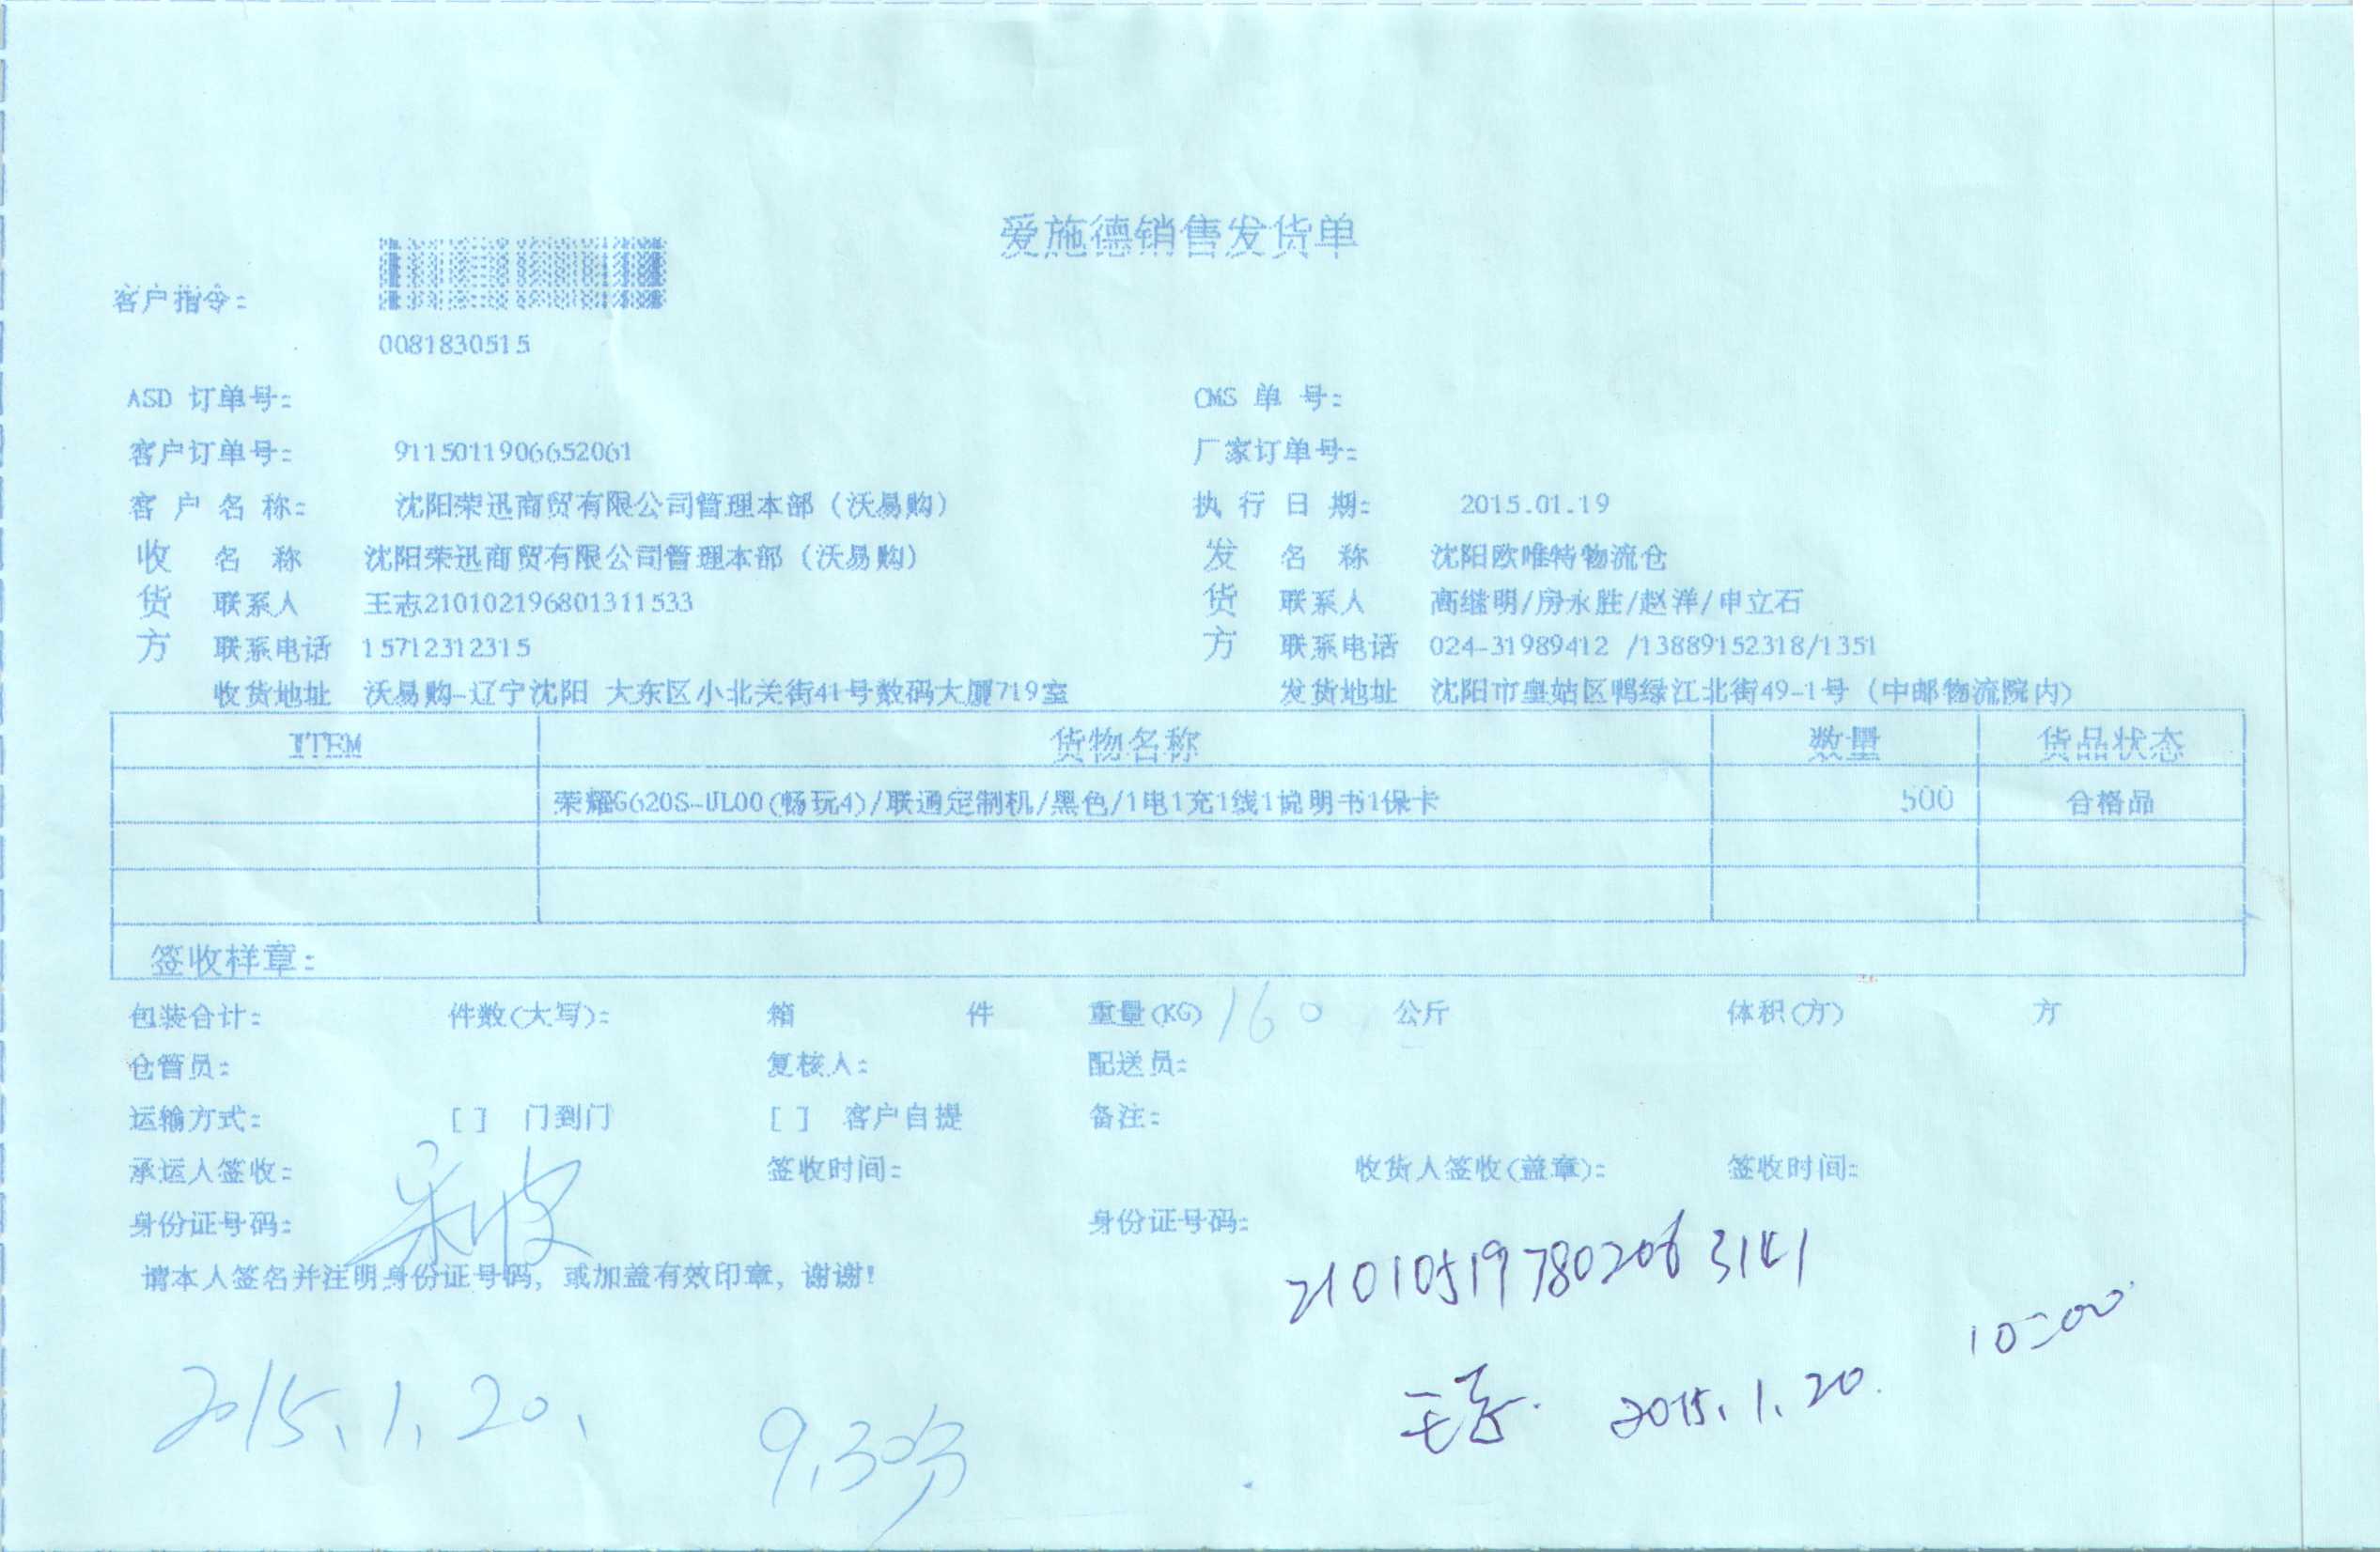 爱施德销售发货单
客户指令:
0081830515
ASD 订单号: CMS 单 号:
客户订单号: 9115011906652061 厂家订单号:
客 户 名 称: 沈阳荣迅商贸有限公司管理本部（沃易购） 执 行 日 期: 2015.01.19
收 名 称 沈阳荣迅商贸有限公司管理本部（沃易购） 发 名 称 沈阳欧唯特物流仓
货 联系人 王志210102196801311533 货 联系人 高继明/房永胜/赵洋/申立石
方 联系电话 15712312315 方 联系电话 024-31989412 /13889152318/1351
收货地址 沃易购-辽宁沈阳 大东区小北关街41号数码大厦719室 发货地址 沈阳市皇姑区鸭绿江北街49-1号（中邮物流院内）
ITEM 货物名称 数量 货品状态
荣耀G620S-UL00(畅玩4)/联通定制机/黑色/1电1充1线1说明书1保卡 500 合格品
签收样章:
包装合计: 件数(大写): 箱 件 重量(KG) 160 公斤 体积(方) 方
仓管员: 复核人: 配送员:
运输方式: [ ] 门到门 [ ] 客户自提 备注:
承运人签收: 签收时间: 收货人签收(盖章): 签收时间:
身份证号码: 身份证号码:
请本人签名并注明身份证号码, 或加盖有效印章, 谢谢!
210105197802063141
10:00
2015.1.20. 2015.1.20.
9.30分